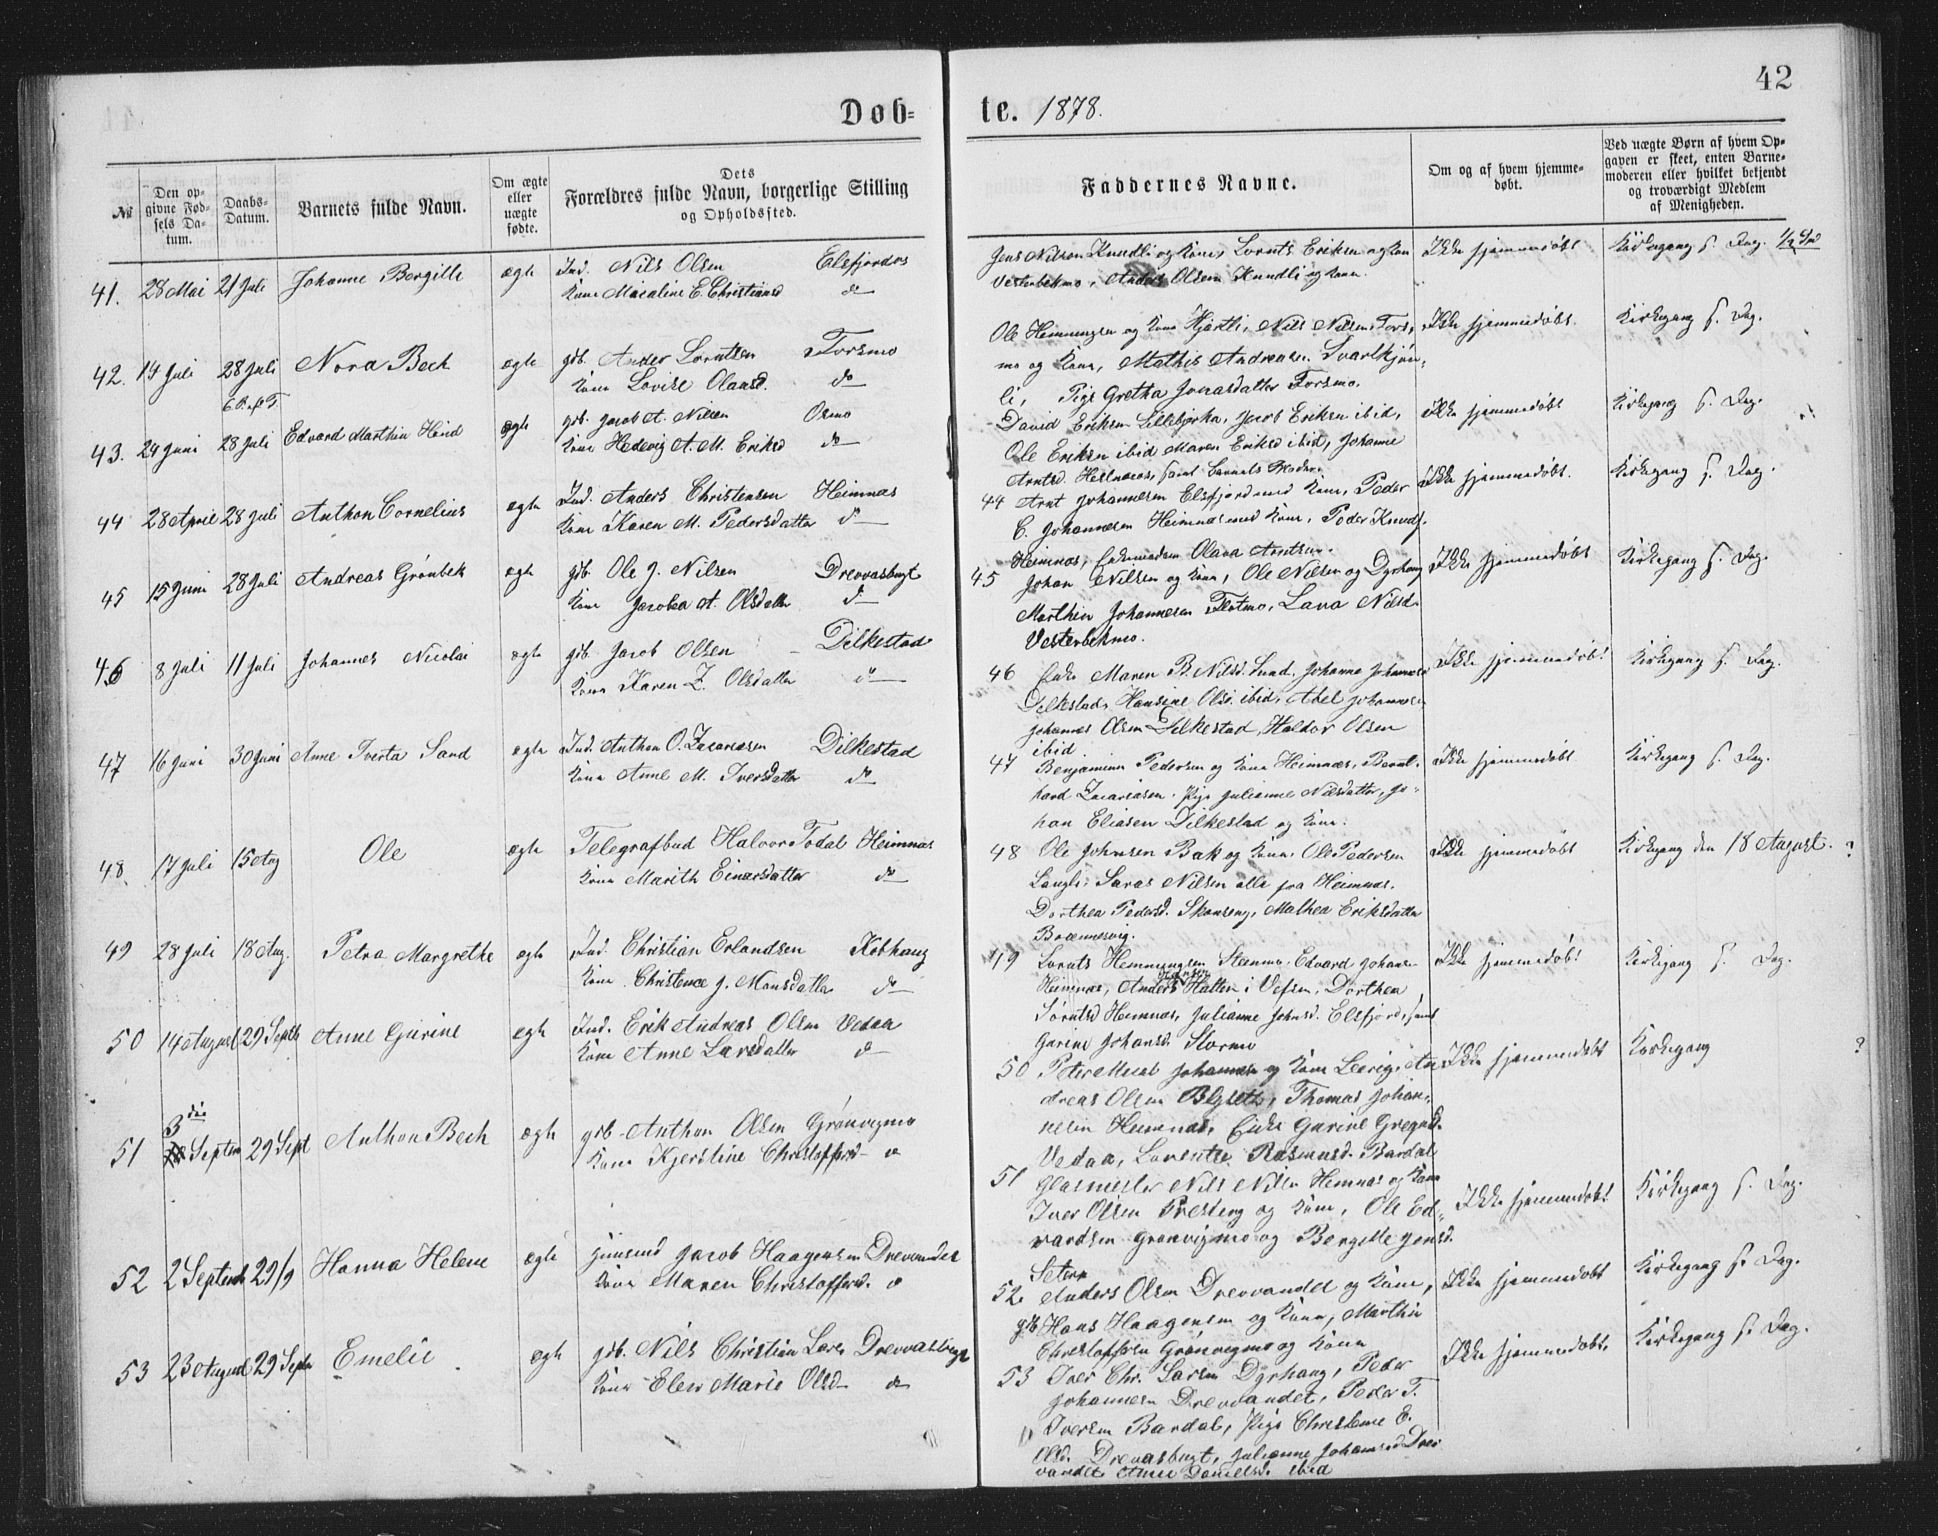 42
Døb= te. 1878.
№
Den opgivne Fødsels Datum.
Daabs-Datum.
Barnets fulde Navn.
Om ægte eller uægte fødte.
Dets Forældres fulde Navn, borgerlige Stilling og Opholdssted.
Faddernes Navne.
Om og af hvem hjemmedøbt.
Ved uægte Børn af hvem Opgaven er skeet, enten Barnemoderen eller hvilket bekjendt og troværdigt Medlem af Menigheden.
41. 28 Mai 21 Juli Johanne Bergitte ægte Ind. Nils Olsen Elsfjordos
Kone E. Christiansd do
Jens Nilsen Kundli og Kone, Lornts Eriksen og Kone
Vesterbekmo, Anders Olsen Kundli og Kone.
Ikke hjemmedøbt Kirkegang s. Dag.
42. 14 Juli 28 Juli Nora Bech ægte gdb. Ander Lorntsen Forsmo
6 S. ef T.
Kone Lovise Olausd. do
Ole Hemmingsen og Kone Hjartli, Nils Nilsen Fors,
mo og Kone, Mathis Andreasen Svartkjøn,
li, Pige Gretha Jonasdatter Forsmo.
Ikke hjemmedøbt. Kirkegang s. Dag.
43. 24 Juni 28 Juli Edvard Marthin Hind ægte gdb. Jacob A. Nilsen Osmo
Kone Hedevig A. M. Eriksd do
David Eriksen Lillebjerka, Jacob Eriksen ibid,
Ole Eriksen ibid Maren Eriksd ibid, Johanne
Arntsd. samt Barnets Moder.
Ikke hjemmedøbt Kirkegang s. Dag.
44 28 April 28 Juli Anthon Cornelius ægte Ind. Anders Christensen Heimnæs
Kone Karen M. Pedersdatter do
44 Arnt Johannesen Elsfjord med Kone, Peder
C. Johannesen Heimnæs med Kone, Peder Knuds.
Heimnæs, Enkemadam Olava Arntsen.
Ikke hjemmedøbt. Kirkegang s. Dag.
45 15 Juni 28 Juli Andreas Grønbek ægte gdb. Ole J. Nilsen Drevvasbugt
Kone Jacobea A. Olsdatter do
45 Johan Nilsen og Kone, Ole Nilsen og Dyrhaug
Marthin Johannesen Flotmo, Lava Nilsd.
Vesterbekmo.
Ikke hjemmedøbt Kirkegang s. Dag.
46 8 Juli 11 Juli Johannes Nicolai ægte gdb. Jacob Olsen Dilkestad
Kone Karen Z. Olsdatter do
46 Enke Maren B. Nilsd. Sund. Johanna Johannesd
Dilkestad, Hansine Olsd. ibid, Abel Johannesen
Johannes Olsen Dilkestad, Haldor Olsen
ibid
Ikke hjemmedøbt Kirkegang s. Dag.
47 16 Juni 30 Juni Anne Iverta Sand ægte Ind. Anthon O. Zacariasen Dilkestad
Kone Anne M. Iversdatter do
47 Benjaminn Pedersen og Kone Heimnæs, Bernt-
hard Zacariasen. Pige Julianne Nilsdatter, Jo-
han Eliasen Dilkestad og Kone.
Ikke hjemmedøbt Kirkegang s. Dag.
48. 17 Juli 15 Aug Ole ægte Telegrafbud Halvor Todal Heimnæs
Kone Marith Einarsdatter do
48 Ole Johnsen Bak og Kone, Ole Pedersen
Langli, Saras Nilsen alle fra Heimnæs.
Dorthea Pedersd. Skanseng, Mathea Eriksdatter
Ikke hjemmedøbt Kirkegang den 18 August. ?
49 28 Juli 18 Aug. Petra Margrethe ægte Ind. Christian Erlandsen Kobhaug
Kone Christence J. Monsdatter do
49 Lornts Hemmingsen Steenmo. Edvard Johans
Heimnæs, Anders Hansen Halten i Vefsen, Dorthea
Lorntsd Hemnæs, Julianne Johnsd. Elsfjord, samt
Garine Johansd. Stormo
Ikke hjemmedøbt Kirkegang s. Dag.
50 14 August 29 Septb Anne Gurine ægte Ind. Erik Andreas Olsen Vedaa
Kone Anne Larsdatter do
50 Peter Johannesen og Kone An
dreas Olsen Thomas Johan,
nesen Hemnæs, Enke Garine Gregusd.
Vedaa, Lorentse Rasmusd. Bardal
Ikke hjemmedøbt Kirkegang ?
51 3die Septem 29 Sept Anthon Bech ægte gdb. Anthon Olsen Grønvigmo
Kone Kjerstine Christoffersd. do
51 Glasmester Nils Nilsen Hemnæs og Kone
Iver Olsen Presteng og Kone, Ole Ed-
vardsen Grønvigmo og Bergitte Jensd.
Seteren
Ikke hjemmedøbt Kirkegang s. Dag.
52 2 Septemb 29/9 Hanna Helene ægte Jacob Haagensen Drevvandet
Kone Maren Christoffersd. do
52. Anders Olsen Drevvandet og Kone,
gdb Hans Haagensen og Kone, Marthin
Christoffersen Grønvigmo og Kone
Ikke hjemmedøbt Kirkegang s. Dag.
53 23 August 29 Septe Emelie ægte gdb. Nils Christian Lars. Drevvasbugt
Kone Elen Marie Olsd. do
53 Iver Chr. Larsen Dyrhaug, Peder
Johannesen Drevvandet, Peder T.
Iversen Bardal, Pige Christence E.
Olsd. Drevasbugt, Julianne Johannesd Drev
vandet, Anne Danielsd. ibid
Ikke hjemmedøbt. Kirkegang s. Dag.